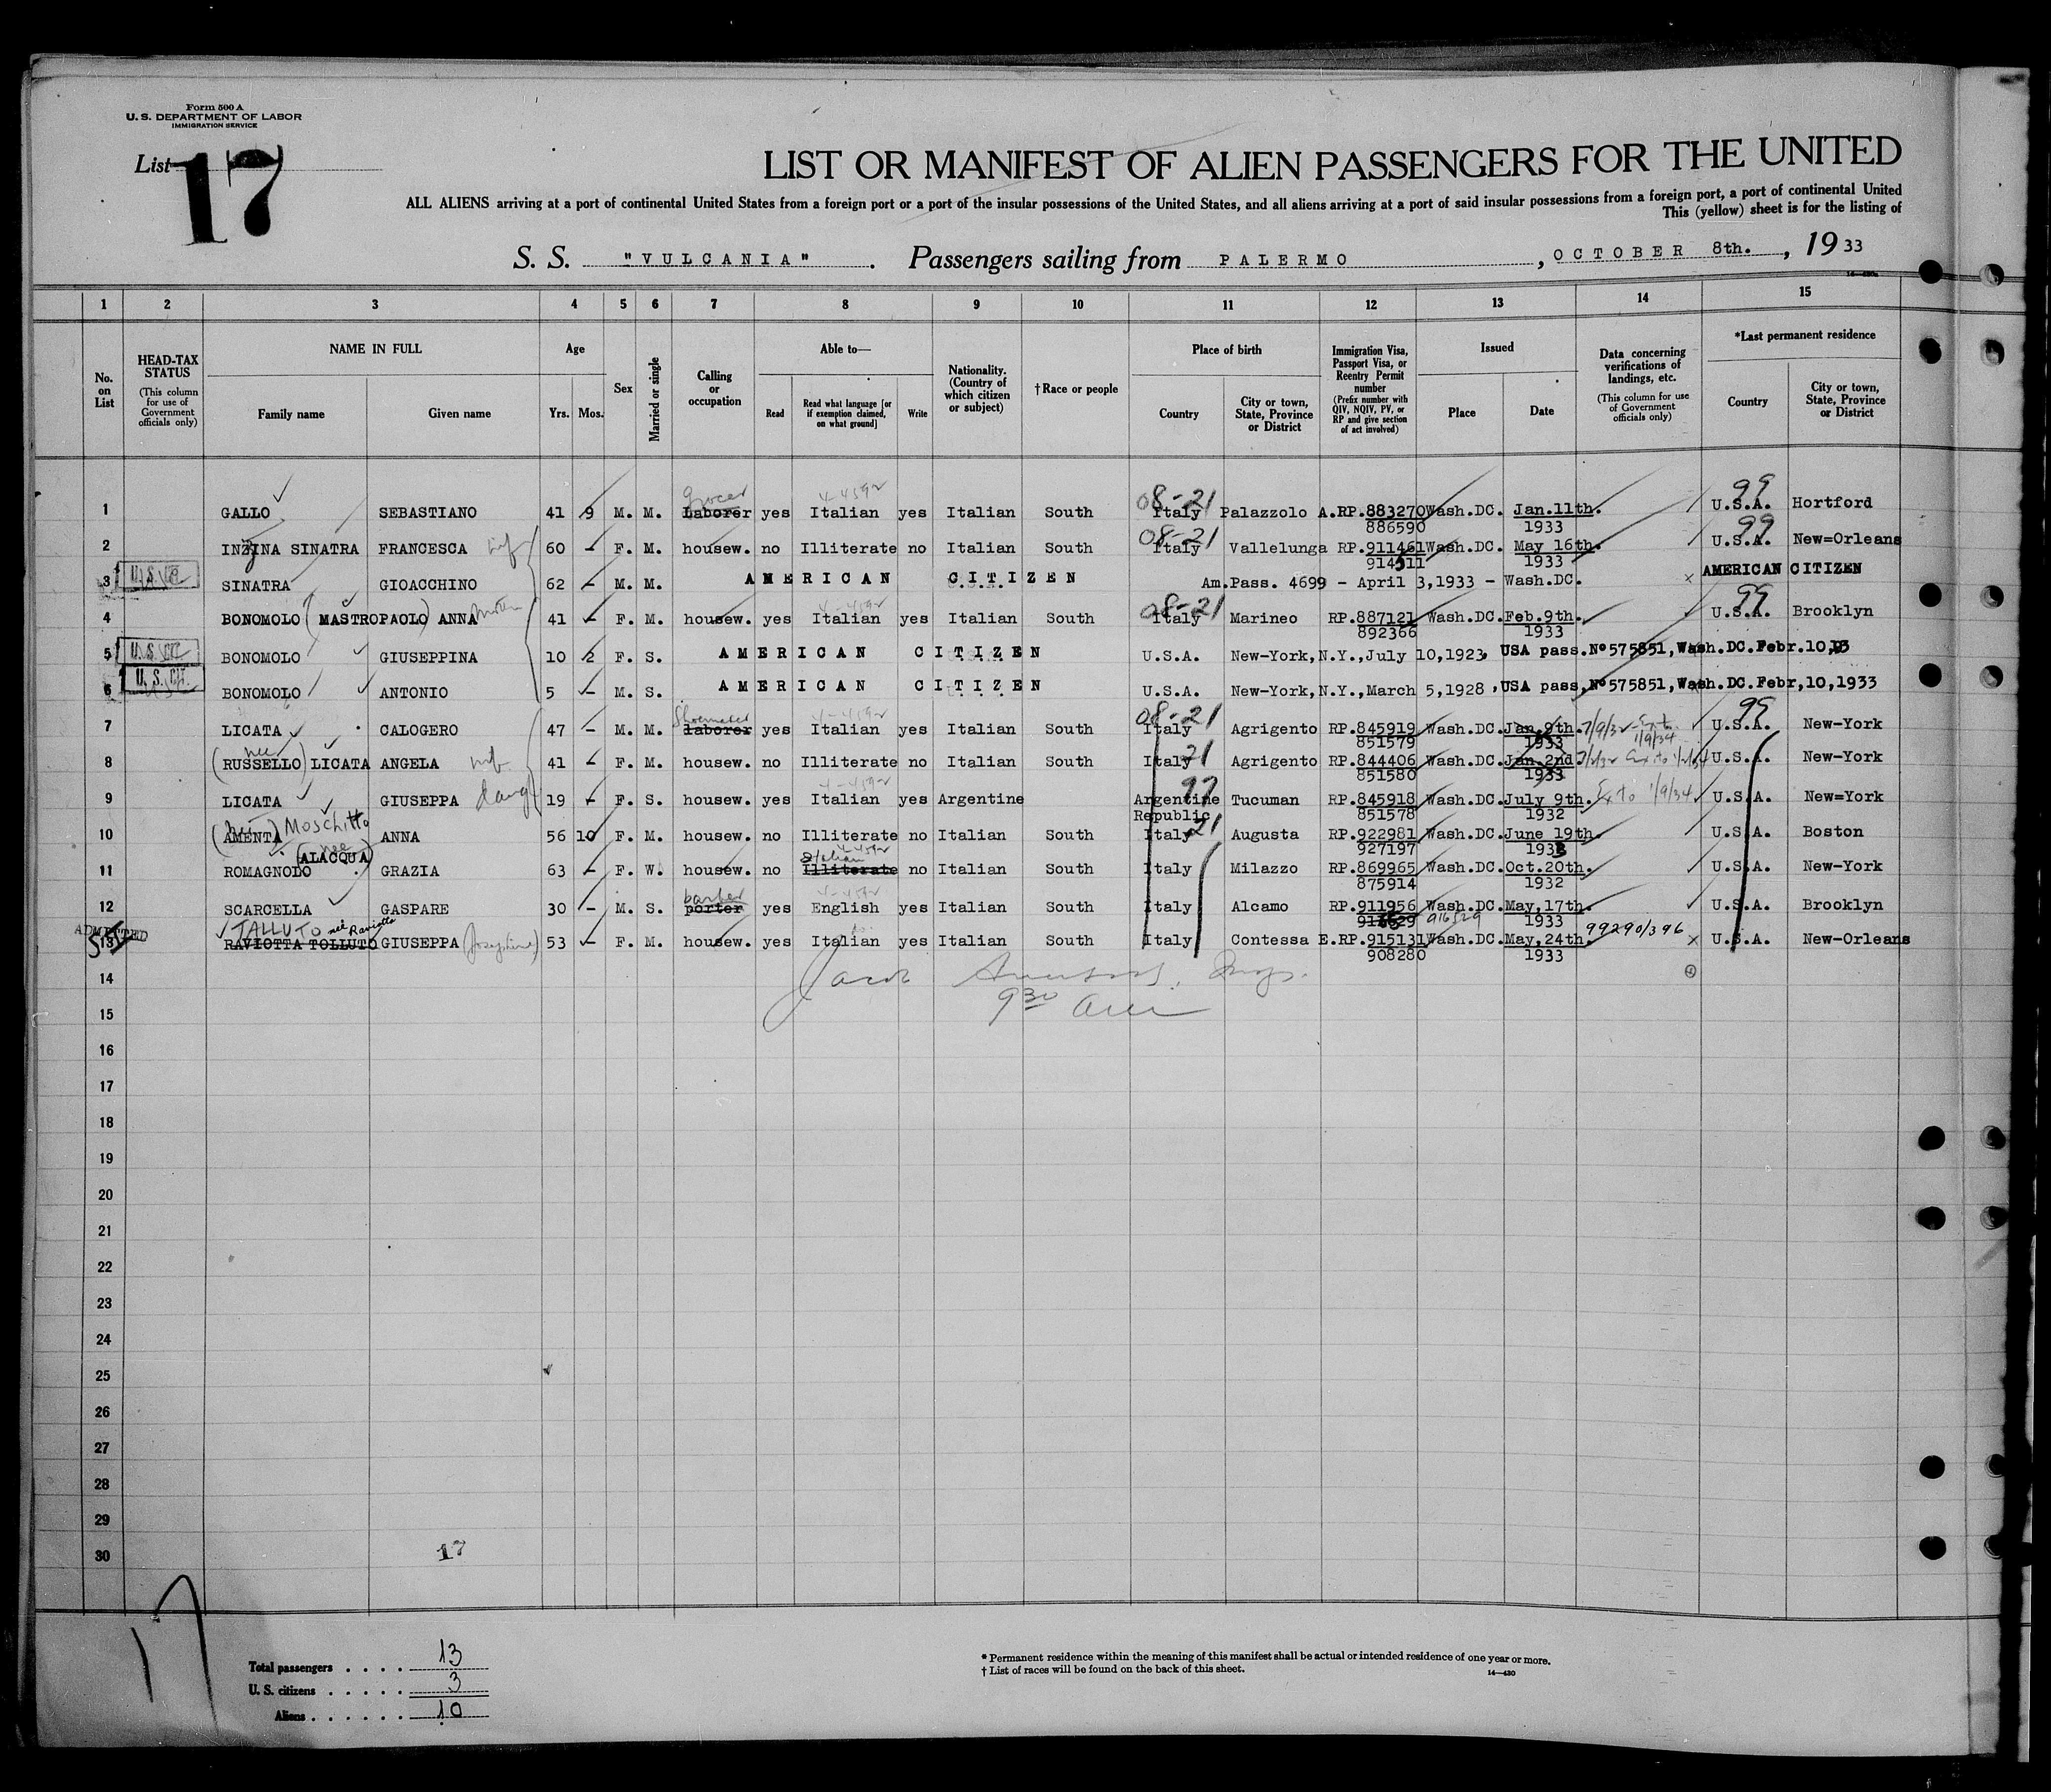 Form 500 A
U. S. DEPARTMENT OF LABOR
IMMIGRATION SERVICE
List 17
LIST OR MANIFEST OF ALIEN PASSENGERS FOR THE UNITED
ALL ALIENS arriving at a port of continental United States from a foreign port or a port of the insular possessions of the United States, and all aliens arriving at a port of said insular possessions from a foreign port, a port of continental United
This (yellow) sheet is for the listing of
S. S. "VULCANIA". Passengers sailing from PALERMO, OCTOBER 8th., 1933
1 2 3 4 5 6 7 8 9 10 11 12 13 14 15
No. on List
HEAD-TAX STATUS
(This column for use of Government officials only)
NAME IN FULL
Family name
Given name
Age
Yrs. Mos.
Sex
Married or single
Calling or occupation
Able to—
Read
Read what language [or if exemption claimed, on what ground]
Write
Nationality. (Country of which citizen or subject)
†Race or people
Place of birth
Country
City or town, State, Province or District
Immigration Visa, Passport Visa, or Reentry Permit number
(Prefix number with QIV, NQIV, PV, or RP and give section of act involved)
Issued
Place
Date
Data concerning verifications of landings, etc.
(This column for use of Government officials only)
*Last permanent residence
Country
City or town, State, Province or District
Grocer 08-21 99
1 GALLO SEBASTIANO 41 9 M. M. Laborer yes Italian yes Italian South Italy Palazzolo A. RP.883270 Wash.DC. Jan.11th. U.S.A. Hortford
886590 1933
08-21 99
2 INZINA SINATRA FRANCESCA wife 60 - F. M. housew. no Illiterate no Italian South Italy Vallelunga RP.911461 Wash.DC. May 16th. U.S.A. New=Orleans
914511 1933
3 U.S. CIT. SINATRA GIOACCHINO 62 - M. M. AMERICAN CITIZEN Am.Pass. 4699 - April 3,1933 - Wash.DC. x AMERICAN CITIZEN
08-21 99
4 BONOMOLO (MASTROPAOLO) ANNA 41 - F. M. housew. yes Italian yes Italian South Italy Marineo RP.887121 Wash.DC. Feb.9th. U.S.A. Brooklyn
892366 1933
5 U.S. CIT. BONOMOLO GIUSEPPINA 10 2 F. S. AMERICAN CITIZEN U.S.A. New-York,N.Y.,July 10,1923, USA pass.Nº575851,Wash.DC.Febr.10,
6 U.S. CIT. BONOMOLO ANTONIO 5 - M. S. AMERICAN CITIZEN U.S.A. New-York,N.Y.,March 5,1928, USA pass,Nº575851,Wash.DC.Febr,10,1933
Shoemaker 08-21 99
7 LICATA CALOGERO 47 - M. M. laborer yes Italian yes Italian South Italy Agrigento RP.845919 Wash.DC. Jan.9th. 7/9/32 Ext. 1/9/34 U.S.A. New-York
851579 1933
nee 21
8 (RUSSELLO) LICATA ANGELA wife 41 - F. M. housew. no Illiterate no Italian South Italy Agrigento RP.844406 Wash.DC. Jan.2nd. U.S.A. New-York
851580 1933
97
9 LICATA GIUSEPPA daug 19 - F. S. housew. yes Italian yes Argentine Argentine Republic Tucuman RP.845918 Wash.DC. July 9th. Ex to 1/9/34 U.S.A. New=York
851578 1932
21
10 (AMENTA) Moschitto ANNA 56 10 F. M. housew. no Illiterate no Italian South Italy Augusta RP.922981 Wash.DC. June 19th. U.S.A. Boston
927197 1933
(nee ALACQUA) Italian
11 ROMAGNOLO GRAZIA 63 - F. W. housew. no Illiterate no Italian South Italy Milazzo RP.869965 Wash.DC. Oct.20th. U.S.A. New-York
875914 1932
barber
12 SCARCELLA GASPARE 30 - M. S. porter yes English yes Italian South Italy Alcamo RP.911956 Wash.DC. May,17th. U.S.A. Brooklyn
916529 1933
ADMITTED TALLUTO neè Raviotta
13 RAVIOTTA TOLLUTO GIUSEPPA (Josephine) 53 - F. M. housew. yes Italian yes Italian South Italy Contessa E. RP.915131 Wash.DC. May,24th. 99290/396 x U.S.A. New-Orleans
908280 1933
14
9 30
15
16
17
18
19
20
21
22
23
24
25
26
27
28
29
30
17
17
Total passengers . . . . 13
U. S. citizens . . . . . 3
Aliens . . . . . . 10
* Permanent residence within the meaning of this manifest shall be actual or intended residence of one year or more.
† List of races will be found on the back of this sheet.
14—430